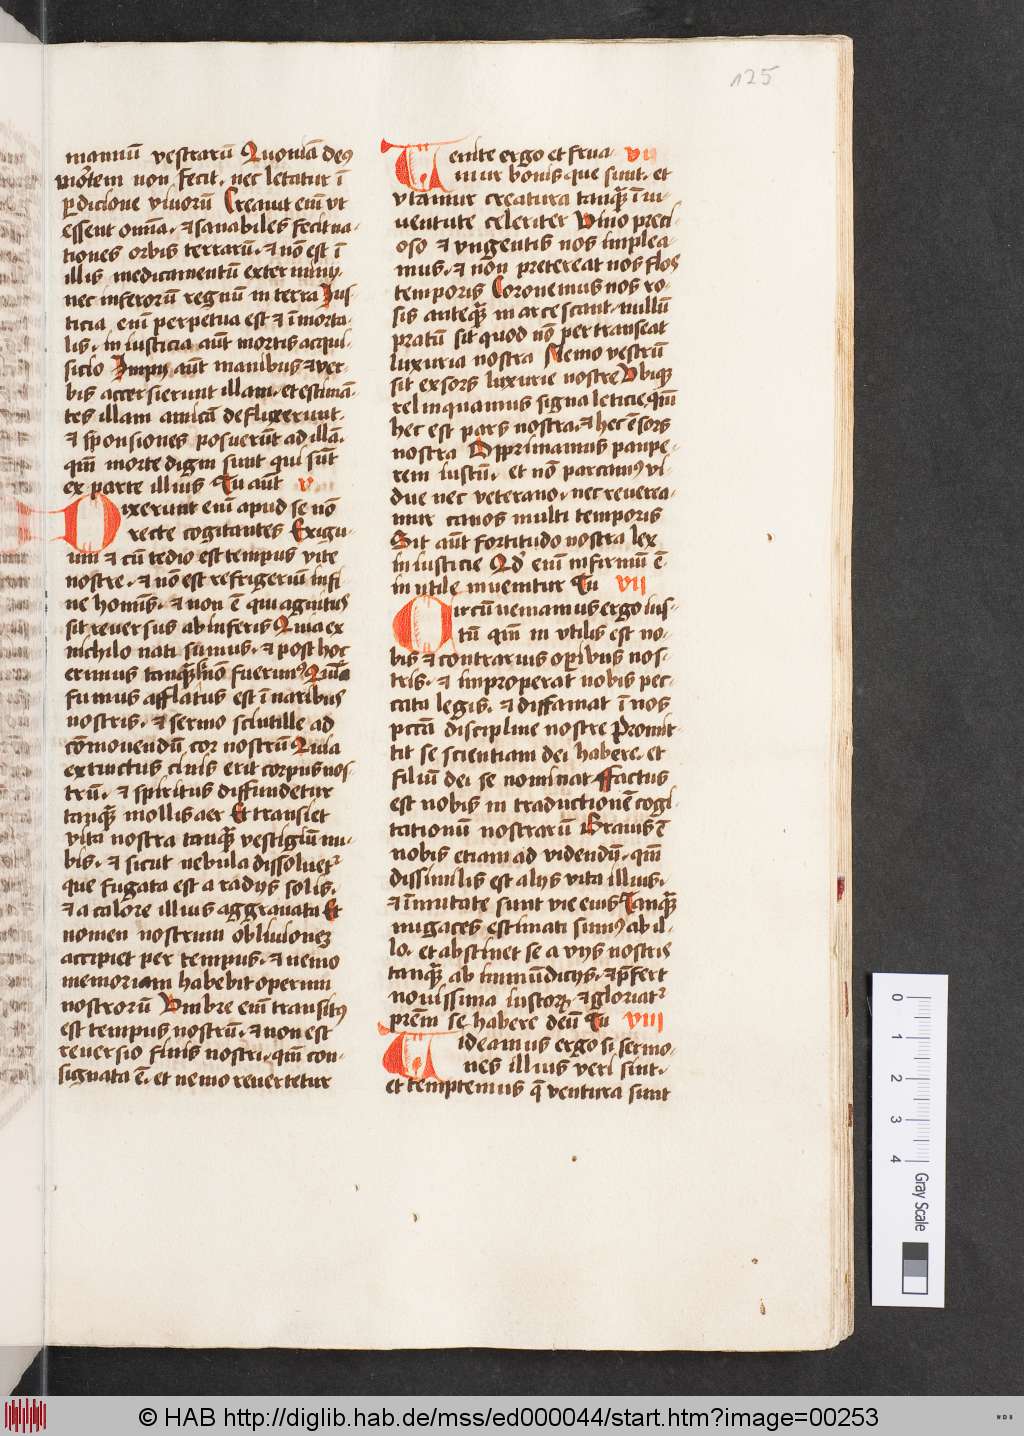 125
manuū vestrarū Quoniā deꝰ
mortem non fecit. nec letatur ī
ꝑdicione vivorū Creavit enī vt
essent omīa. ⁊ sanabiles fecit na-
tiones orbis terrarū. ⁊ nō est ī
illis medicamentū exterminij.
nec inferorū regnū in terra Jus-
ticia enī perpetua est ⁊ īmorta-
lis. iniusticia aūt mortis acqui-
sicio Impij aūt manibus ⁊ ver-
bis accersierunt illam. et estimā-
tes illam amicā defluxerunt.
⁊ sponsiones posuerūt ad illā.
qm̄ morte digni sunt qui sūt
ex parte illius Tu aūt v
Dixerunt enī apud se nō
recte cogitantes Exigu-
um ⁊ cū tedio est tempus vite
nostre. ⁊ nō est refrigeriū in fi
ne homīs. ⁊ non ē qui agnitus
sit reversus ab inferis Quia ex
nichilo nati sumus. ⁊ post hoc
erimus tanqꝫ si nō fuerimꝰ Qm̄
fumus afflatus est ī naribus
nostris. ⁊ sermo scintille ad
cōmovendū cor nostrū Quia
extinctus cinis erit corpus nos-
trū. ⁊ spiritus diffundetur
tanqꝫ mollis aer Et transiet
vita nostra tanqꝫ vestigiū nu-
bis. ⁊ sicut nebula dissoluetᷣ
que fugata est a radijs solis.
⁊ a calore illius aggravata Et
nomen nostrum oblivionem
accipiet per tempus. ⁊ nemo
memoriam habebit operum
nostrorū Vmbre enī transitꝰ
est tempus nostrū. ⁊ non est
reversio finis nostri. qm̄ con-
signata ē. et nemo revertetur
Venite ergo et frua- vi
mur bonis que sunt. et
vtamur creatura tanqꝫ ī iu-
ventute celeriter Vino preci-
oso ⁊ vngentis nos implea-
mus. ⁊ nōn pretereat nos flos
temporis Coronemus nos ro-
sis anteqꝫ marcescant. nullū
pratū sit quod nō pertranseat
luxuria nostra Nemo vestrū
sit exsors luxurie nostre Vbiqꝫ
relinquamus signa leticie. qm̄
hec est pars nostra. ⁊ hec ē sors
nostra Opprimamus paupe-
rem iustū. et nō parcamꝰ vi-
due nec veterano. nec reverea-
mur canos multi temporis
Sit aūt fortitudo nostra lex
iniusticie Qd̄ enī infirmū ē
inutile invenitur Tu vii
Circūveniamus ergo ius-
tū qm̄ inutilis est no-
bis ⁊ contrarius oꝑibus nos-
tris. ⁊ improperat nobis pec-
cata legis. ⁊ diffamat ī nos
pctā discipline nostre Promit-
tit se scientiam dei habere. et
filiū dei se nominat Factus
est nobis in traductionē cogi-
tationū nostrarū Gravis ē
nobis etiam ad videndū. qm̄
dissimilis est alijs vita illius.
⁊ īmutate sunt vie eius Tanqꝫ
nugaces estimati sumꝰ ab il-
lo. et abstinet se a vijs nostris
tanqꝫ ab inmūdicijs. ⁊ p̄fert
novissima iustoꝝ. ⁊ gloriatᷣ
prēm se habere deū Tu viii
Videamus ergo si sermo-
nes illius veri sint.
et temptemus q̄ ventura sunt
0 1 2 3 4
Gray Scale
© HAB http://diglib.hab.de/mss/ed000044/start.htm?image=00253